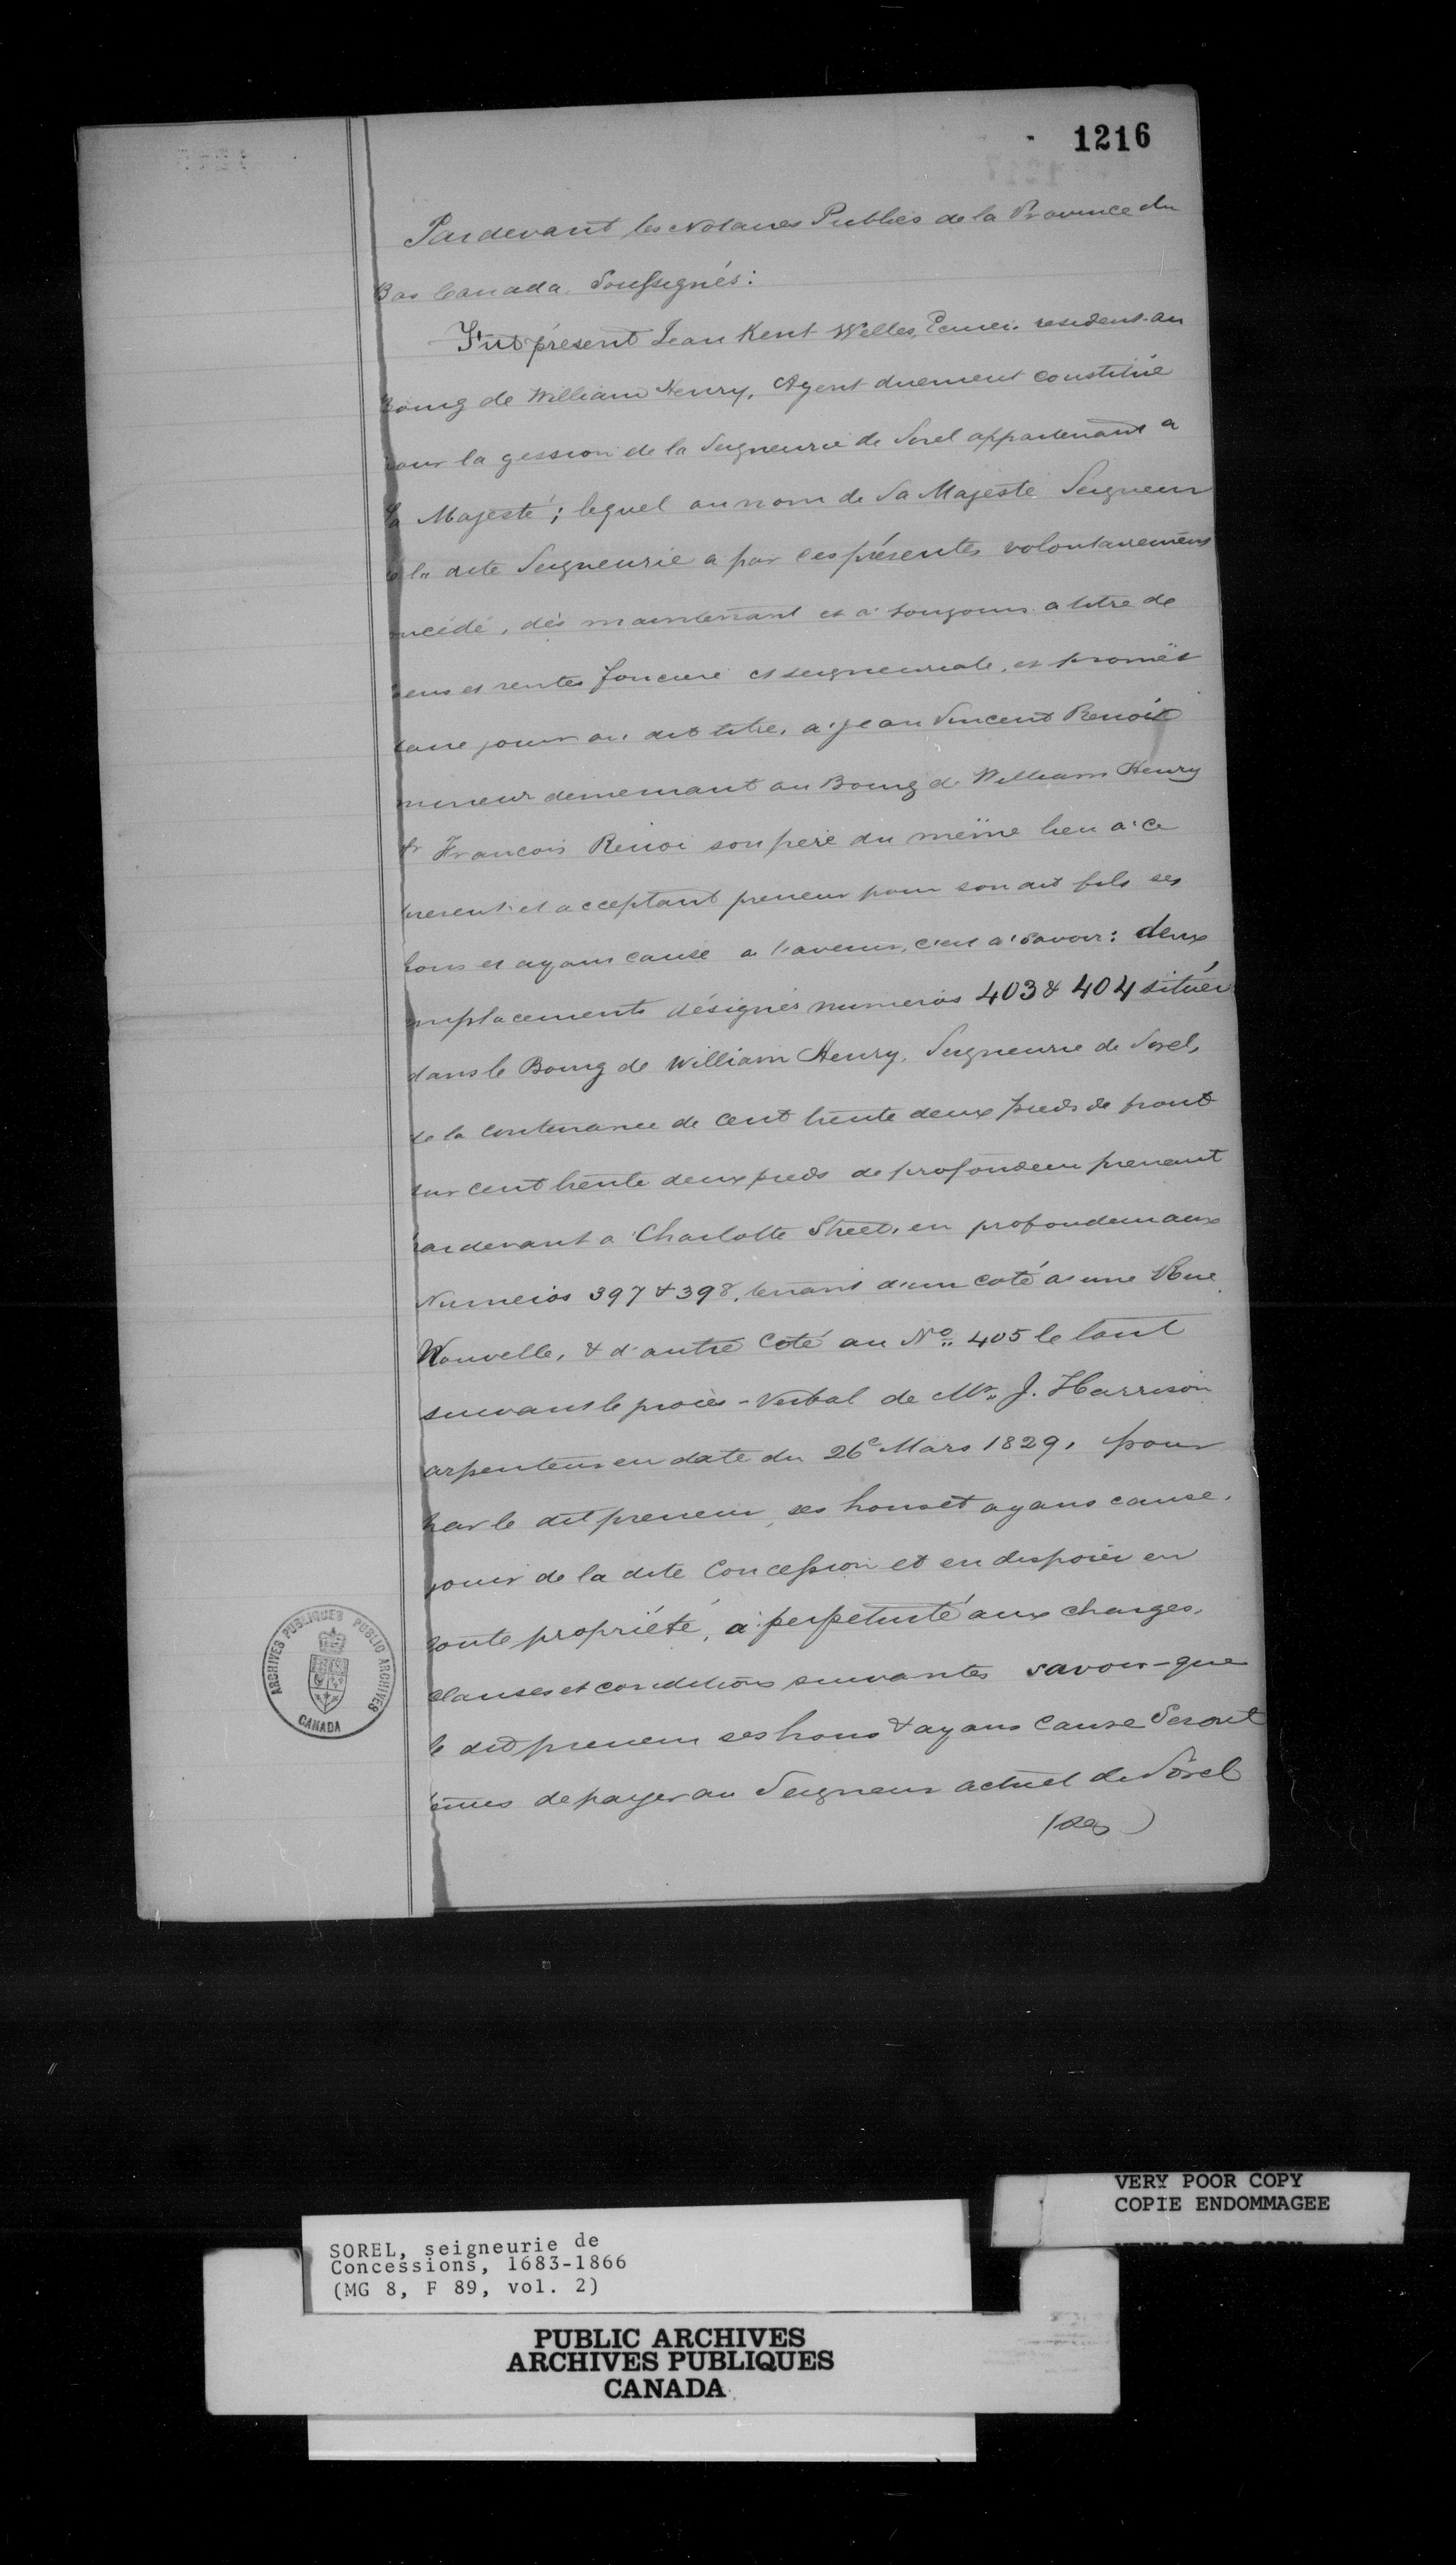 1216
Pardevant les Notaires Publics de la Province du
Bas Canada. Soussignés:
Fut présent Jean Kent Welles, Ecuier. resident au
Bourg de William Henry, Agent duement constitué
pour la gession de la Seigneurie de Sorel appartenant a
Sa Majesté; lequel au nom de Sa Majeste Seigneur
la dite Seigneurie a par ces présentes volontairement
concédé, dès maintenant et a toujours a titre de
cens et rentes fonciere et seigneuriale, et promet
faire jouir au dit titre, a Jean Vincent Benoit
mineur demeurant au Bourg de William Henry
& Francois Benoi son pere du même lieu a ce
present et acceptant preneur pour son dit fils ses
hoirs et ayans cause a l'avenir, c'est a savoir: deux
emplacements désignés numeros 403 & 404 situés
dans le Bourg de William Henry, Seigneurie de Sorel,
de la contenance de cent trente deux pieds de front
sur cent trente deux pieds de profondeur prenant
pardevant a Charlotte Street, en profondeur aux
Numeros 397 & 398, tenant d'un coté a une Rue
Nouvelle, & d'autre Coté au No. 405 le tout
suivant le procès-Verbal de Mr. J. Harrison
arpenteur en date du 26e Mars 1829, pour
par le dit preneur, ses hoirs et ayans cause,
jouir de la dite Concession et en disposer en
toute propriété, a perpetuité aux charges,
clauses et conditions suivantes savoir-que
le dit preneur ses hoirs & ayans cause Seront
tenus de payer au Seigneur actuel de Sorel
ARCHIVES PUBLIQUES PUBLIC ARCHIVES
CANADA
VERY POOR COPY
COPIE ENDOMMAGEE
VERY POOR COPY
SOREL, seigneurie de
Concessions, 1683-1866
(MG 8, F 89, vol. 2)
PUBLIC ARCHIVES
ARCHIVES PUBLIQUES
CANADA